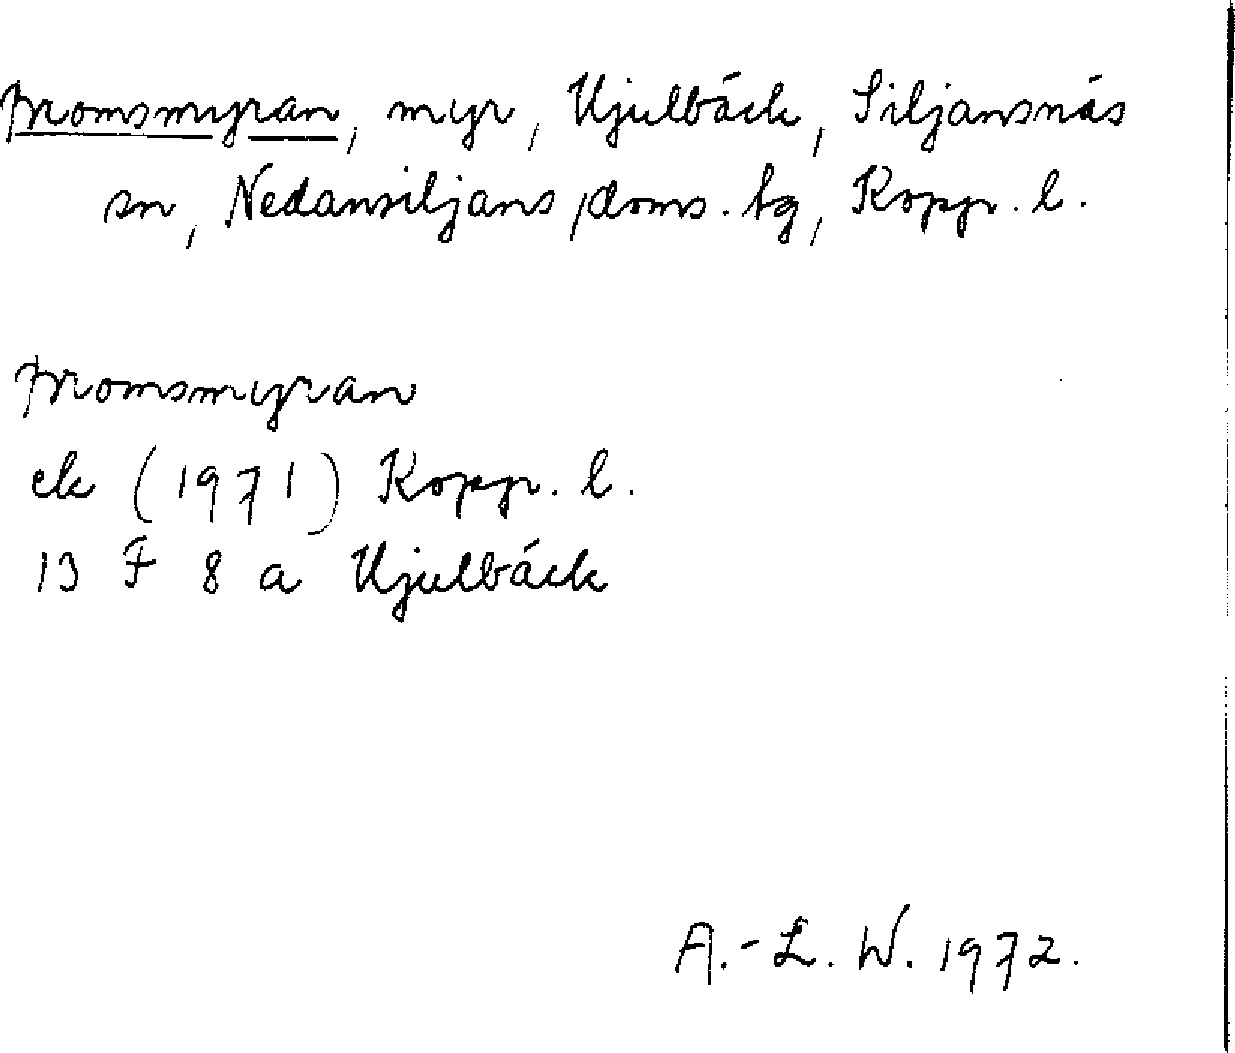 Promsmyran, myr, Hjulbäck, Siljansnäs
sn, Nedansiljans doms. tg, Kopp. l.
Promsmyran
ek (1971) Kopp. l.
13 F 8 a Hjulbäck
A.-L. W. 1972.